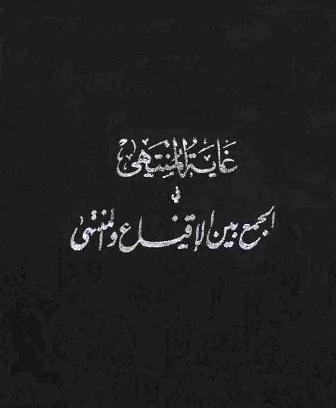 غاية المنتهى
في
الجمع بين الإقناع والمنتهى